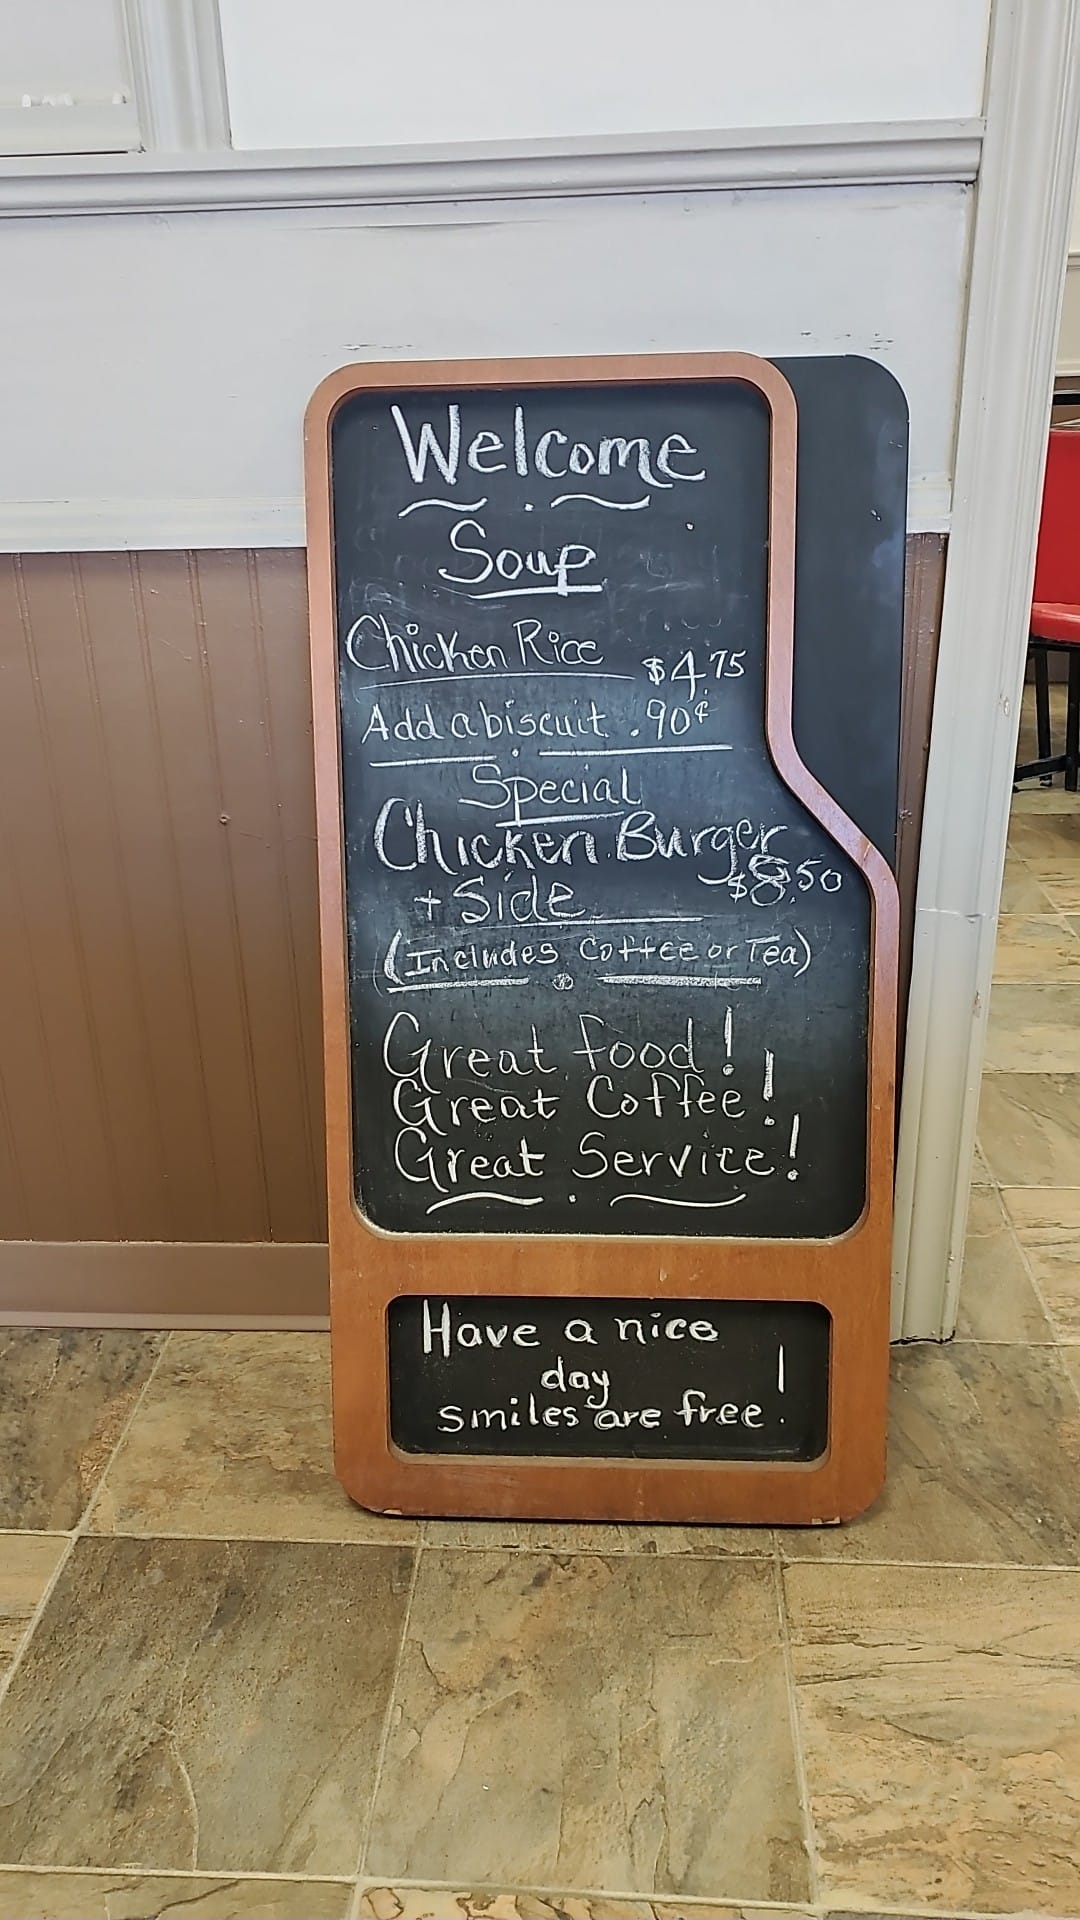 Welcome
Soup
Chicken Rice $4.75
Add a biscuit .90¢
Special
Chicken Burger
+ Side $8.50
(Includes Coffee or Tea)
Great food!
Great Coffee!
Great Service!
Have a nice
day
smiles are free!